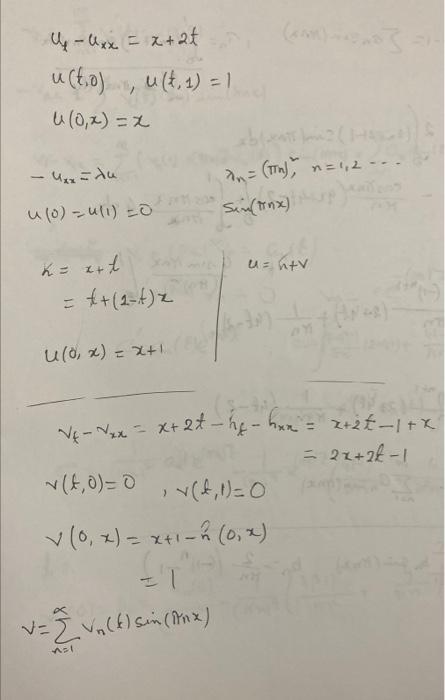 u_t - u_xx = x + 2t
u(t,0) , u(t,1) = 1
u(0,x) = x
- u_xx = λu λ_n = (πn)², n = 1,2 ---
u(0) = u(1) = 0 sin(πnx)
h = x + t u = h + v
= t + (1-t)x
u(0,x) = x+1
v_t - v_xx = x + 2t - h_t - h_xx = x + 2t - 1 + x
= 2x + 2t - 1
v(t,0) = 0 , v(t,1) = 0
v(0,x) = x+1 - h(0,x)
= 1
v = ∑_{n=1}^{∞} v_n(t) sin(πnx)